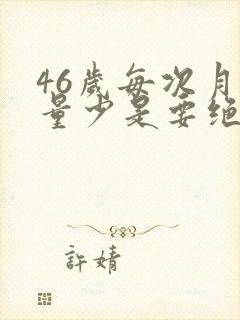 46歲每次月
量少是要绝
許婧